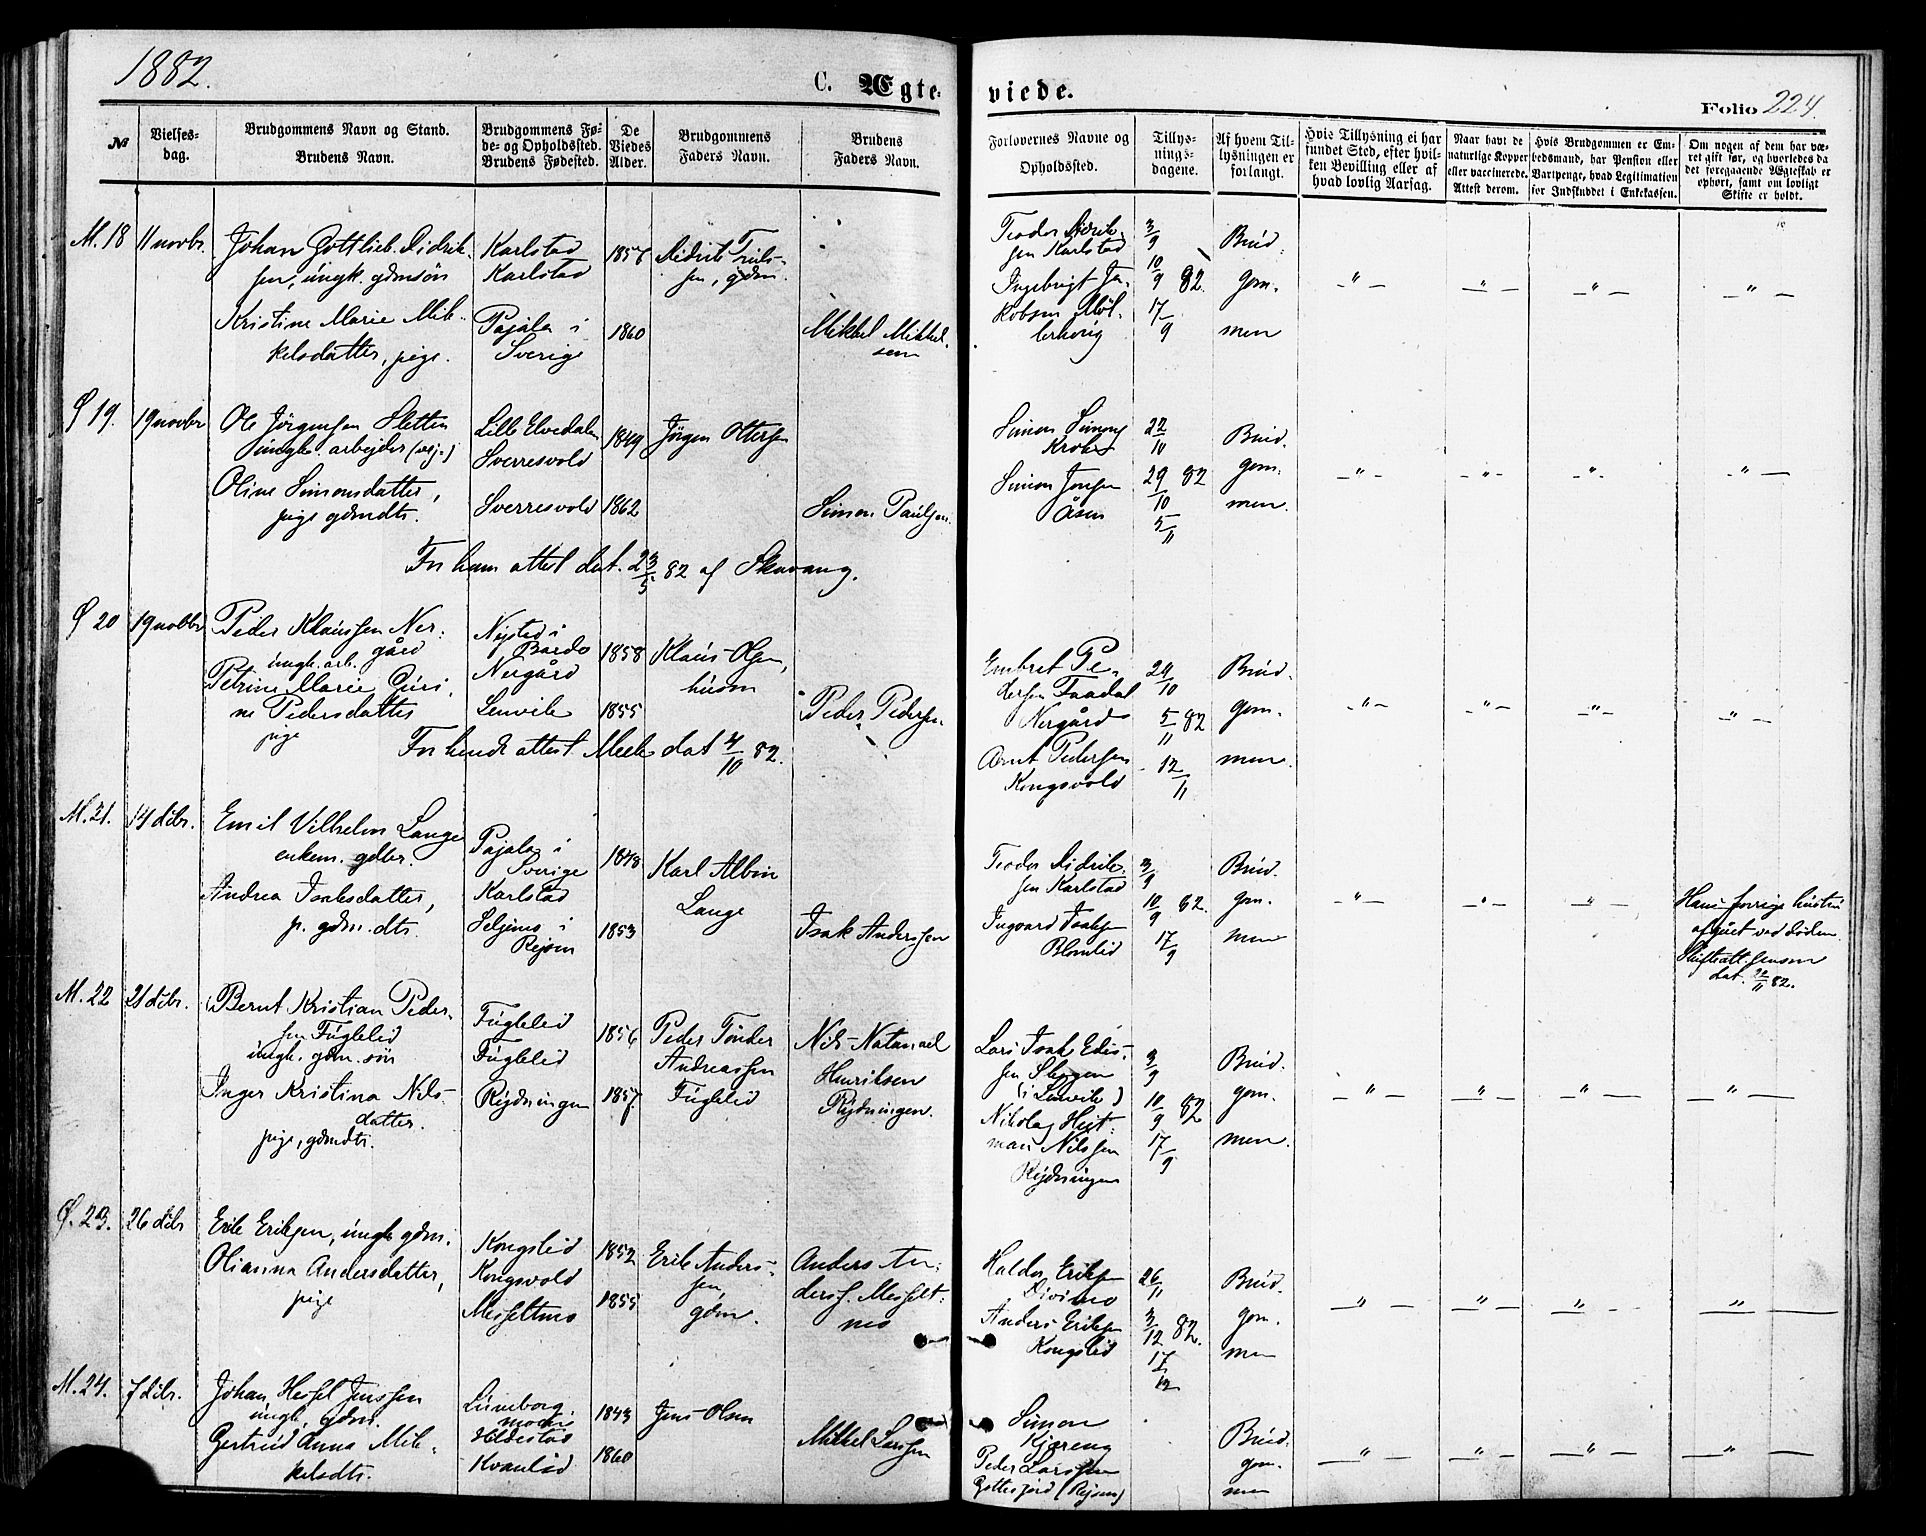 1882.
C. Ægte-
viede.
Folio 224.
№
Vielses-
dag.
Brudgommens Navn og Stand.
Brudens Navn.
Brudgommens Fø-
de- og Opholdssted.
Brudens Fødested.
De
Viedes
Alder.
Brudgommens
Faders Navn.
Brudens
Faders Navn.
Forlovernes Navne og
Opholdssted.
Tillys-
nings-
dagene.
Af hvem Til-
lysningen er
forlangt.
Hvis Tillysning ei har
fundet Sted, efter hvil-
ken Bevilling eller af
hvad lovlig Aarsag.
Naar havt de
naturlige Kopper
eller vaccinerede.
Attest derom.
Hvis Brudgommen er Em-
bedsmand, har Pension eller
Vartpenge, hvad Legitimation
for Indskuddet i Enkekassen.
Om nogen af dem har væ-
ret gift før, og hvorledes da
det foregaaende Ægteskab er
ophørt, samt om lovligt
Skifte er holdt.
M. 18
11 novbr.
Johan Gottlieb Didrik-
sen, ungk. gdmsøn
Kristine Marie Mik-
kelsdatter, pige.
Karlstad
Karlstad
Pajala i
Sverige
1857
1860
Didrik
sen, gdm.
Mikkel Mikkel-
sen
Teodor Didrik-
sen Karlstad
Ingebrigt Ja-
kobsen Møl-
lerhavig
3/9
10/9 82.
17/9
Brud-
gom-
men
Ø 19.
19 novbr
Ole Jørgensen Sletten
ungk. arbejder (vej-)
Oline Simonsdatter,
pige gdmdtr.
Lille Elvedalen
Sverresvold
Sverresvold
1849
1862
Jørgen Ottersen
Simon Paulsen
Simon Simons
Kroken
Simon Jonsen
Åsen
22/10
29/10 82
5/11
Brud-
gom-
men.
For ham attest dat. 23/5 82 af Skavang.
Ø 20
19 novbr
Peder Klaussen Ner-
gård
ungk. arb.
Petrine Marie Guri-
ne Pedersdatter
pige
Nysted i
Bardo
Nergård
Lenvik
1858
1855
Klaus Olsen,
husm
Peder Pedersen
Embret Pe-
dersen Faadal
Nergård
Arnt Pedersen
Kongsvold
29/10
5/11 82
12/11
Brud-
gom-
men.
For hende attest Meele dat 4/10 82.
M. 21.
14 dcbr.
Emil Vilhelm Lange
enkem. gdbr.
Andrea Isaksdatter,
p. gdm.dtr.
Pajala i
Sverige
Karlstad
Seljenes i
Rejsen
1848
1853
Karl Albin
Lange
Isak Anderssen
Teodor Didrik-
sen Karlstad
Ingvard Isaksen
Blomlid
3/9
10/9 82.
17/9
Brud-
gom-
men
Hans forrige hustru
afgået ved døden.
Skifteatt. Jensen
dat. 22/11 82.
M. 22
21 dcbr.
Bernt Kristian Peder-
sen Fugleleid
ungk. gdm.søn
Inger Kristina Nils-
datter.
pige, gdmdtr.
Fuglelid
Fuglelid
Rydningen
1856
1857.
Peder Tønder
Andreassen
Fuglelid
Nils Natanael
Henriksen
Rydningen.
Lars Isak Edis-
sen Skogen
(i Lenvik)
Nikolaj Hejt-
man Nilssen
Rydningen
3/9
10/9 82
17/9
Brud-
gom-
men.
Ø. 23.
26 dcbr
Erik Eriksen, ungk. gdm.
Olianna Andersdatter,
pige
Kongslid
Kongsvold
Messeltmo
1852
1855
Erik Anders-
sen,
gdm.
Anders An-
derss. Messelt-
mo
Haldor Eriksen
Divimo
Anders Eriksen
Kongslid
26/11
3/12 82.
17/12
Brud-
gom-
men
M. 24.
7 dcbr.
Johan Hessel Jenssen
ungk. gdm.
Gertrud Anna Mik-
kelsdtr.
Luneborg-
moen
Kvanlid
1843
1860
Jens Olsen
Mikkel Larssen
Simon
Kjæreng
Peder Larssen
Gottesfjord (Rejsen)
Brud-
gom-
men